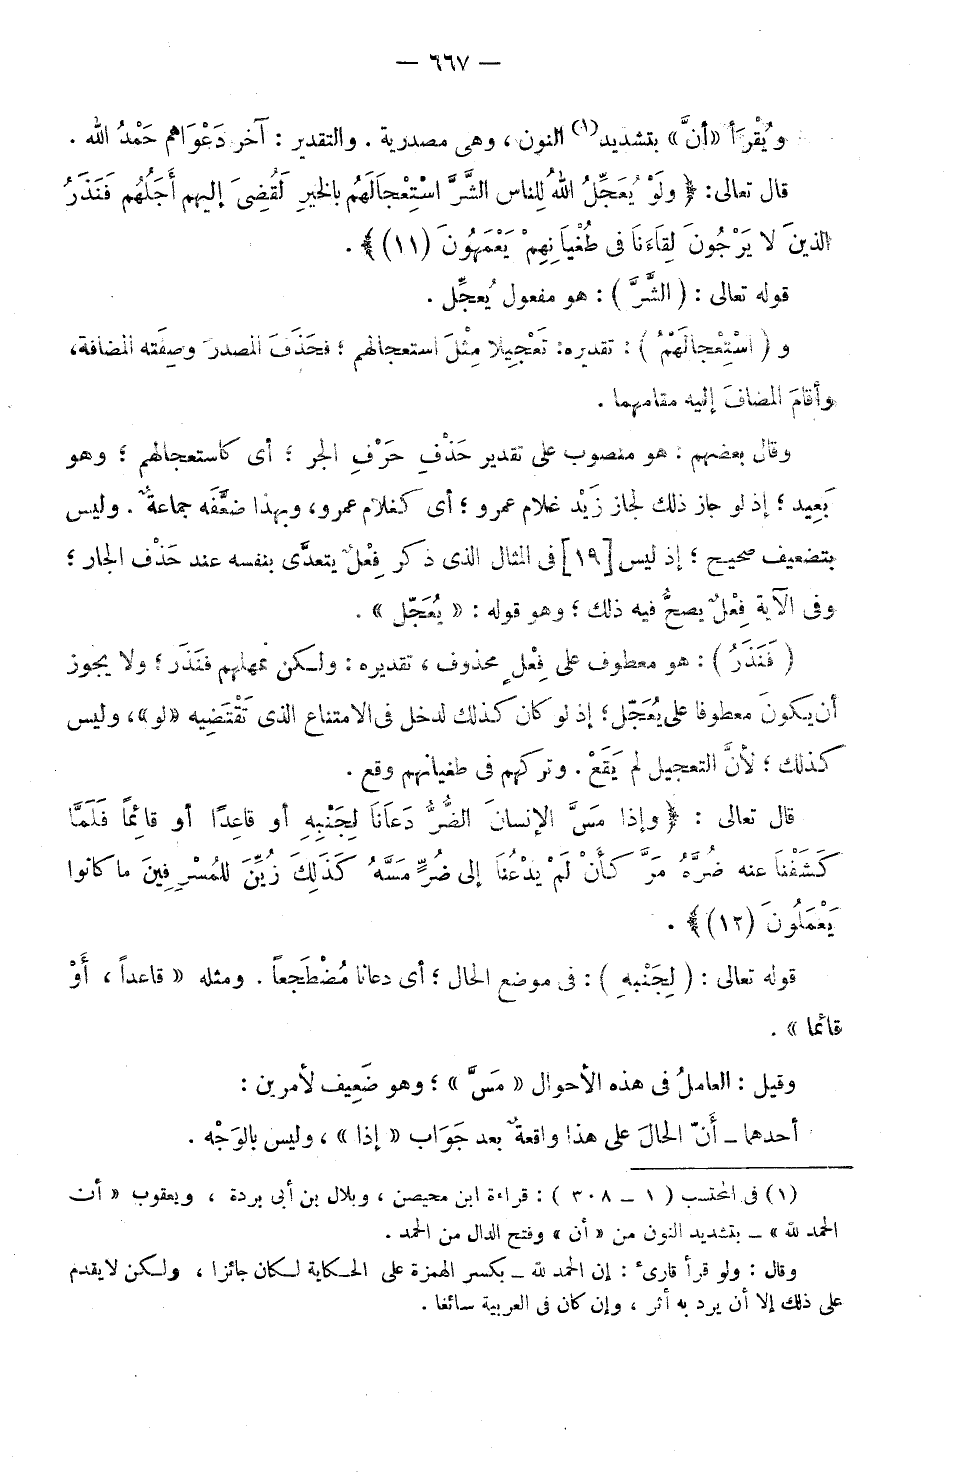 — ٦٦٧ —
ويُقْرَأ «أنَّ» بتشديد(١) النون ، وهى مصدرية . والتقدير : آخر دَعْوَاهم حَمْدُ الله .
قال تعالى: ﴿ ولَوْ يُعَجِّلُ اللهُ لِلناس الشَّرَّ اسْتِعْجالَهُم بالخيرِ لَقُضِىَ إليهم أَجَلُهُم فَنَذَرُ
الذينَ لا يَرْجُونَ لِقاءَنَا فى طُغْيَانِهِمْ يَعْمَهُونَ (١١)﴾ .
قوله تعالى : ( الشَّرَّ ) : هو مفعول يُعجِّل .
و ( اسْتِعْجالَهُمْ ) : تقديره: تَعْجِيلا مِثْلَ استعجالهم ؛ فحَذَفَ المصدرَ وصِفَته المضافة،
وأقامَ المضافَ إليه مقامهما .
وقال بعضهم : هو منصوب على تقدير حَذْفِ حَرْفِ الجر ؛ أى كاستعجالهم ؛ وهو
بَعِيد ؛ إذ لو جاز ذلك لجاز زَيْد غلام عمرو ؛ أى كغلام عمرو، وبهذا ضعَّفَه جماعةٌ . وليس
بتضعيف صحيح ؛ إذ ليس [١٩] فى المثال الذى ذكر فِعْلٌ يتعدَّى بنفسه عند حَذْف الجار ؛
وفى الآية فِعْلٌ يصحُّ فيه ذلك ؛ وهو قوله : « يُعَجّل » .
( فَنَذَرُ ) : هو معطوف على فِعْلٍ محذوف ، تقديره : ولكن نمهلهم فنَذَر ؛ ولا يجوز
أن يكونَ معطوفا على يُعَجّل ؛ إذ لو كان كذلك لدخل فى الامتناع الذى تَقْتَضِيه «لو»، وليس
كذلك ؛ لأنَّ التعجيل لم يَقَعْ . وتركهم فى طغيانهم وقع .
قال تعالى : ﴿ وإذا مَسَّ الإنسانَ الضُّرُّ دَعَانَا لِجَنْبِهِ أو قاعِدًا أو قائِمًا فَلَمَّا
كَشَفْنَا عنه ضُرَّهُ مَرَّ كَأَنْ لَمْ يَدْعُنَا إلى ضُرٍّ مَسَّهُ كَذَلِكَ زُيِّنَ للمُسْرِفِينَ ما كانوا
يَعْمَلُونَ (١٢)﴾ .
قوله تعالى : ( لِجَنْبهِ ) : فى موضع الحال ؛ أى دعانا مُضْطَجعاً . ومثله « قاعداً ، أَوْ
قائما » .
وقيل : العاملُ فى هذه الأحوال « مَسَّ » ؛ وهو ضَعِيف لأمرين :
أحدهما ـ أَنّ الحالَ على هذا واقعةٌ بعد جَوَاب « إذا » ، وليس بالوَجْه .
(١) فى المحتسب ( ١ – ٣٠٨ ) : قراءة ابن محيصن ، وبلال بن أبى بردة ، ويعقوب « أن
الحمد لله » ـ بتشديد النون من « أن » وفتح الدال من الحمد .
وقال : ولو قرأ قارىء : إن الحمد لله ـ بكسر الهمزة على الحكاية لكان جائزا ، ولكن لا يقدم
على ذلك إلا أن يرد به أثر ، وإن كان فى العربية سائغا .